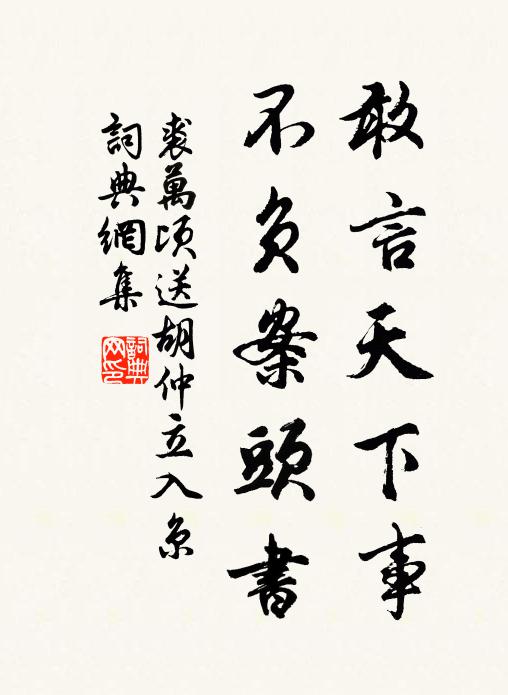 敢言天下事
不負案頭書
裘萬頃送胡仲立入京
詞典網集
詞典網印